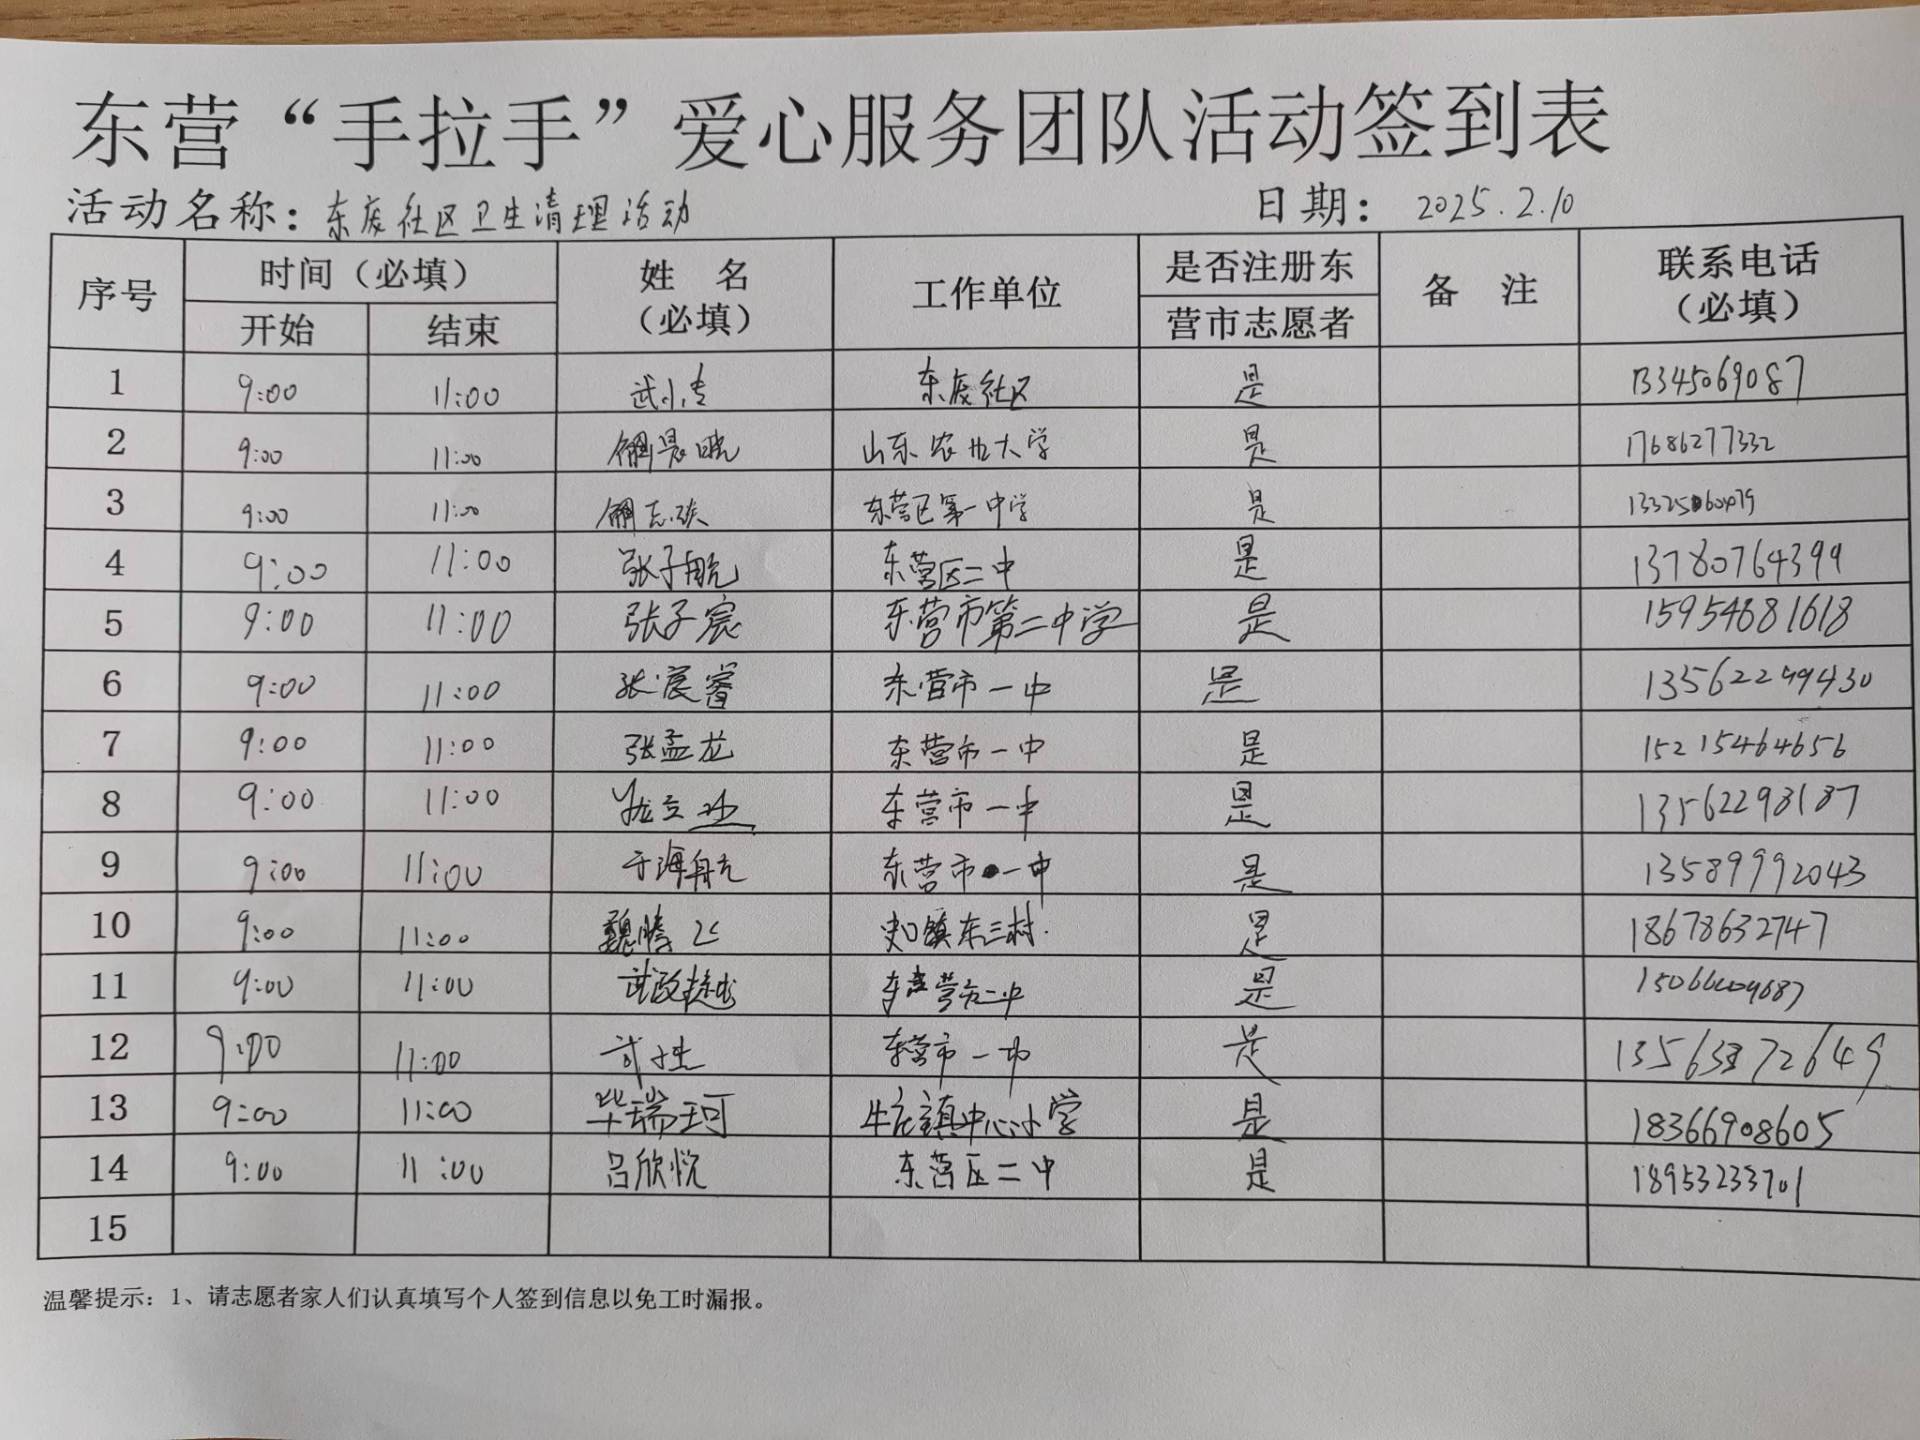 东营“手拉手”爱心服务团队活动签到表
活动名称：东辰社区卫生清理活动 日期：2025.2.10
序号 时间（必填） 姓 名（必填） 工作单位 是否注册东营市志愿者 备 注 联系电话（必填）
开始 结束
1 9:00 11:00 武小 东辰社区 是 13345069087
2 9:00 11:00 晨晓 山东农业大学 是 17686277332
3 9:00 11:00 志 东营区第一中学 是
4 9:00 11:00 张子航 东营区二中 是 13780764399
5 9:00 11:00 张子宸 东营市第二中学 是 15954681618
6 9:00 11:00 张宸睿 东营市一中 是 13562299430
7 9:00 11:00 张孟龙 东营市一中 是 15215464656
8 9:00 11:00 东营市一中 是 13562298187
9 9:00 11:00 于海航 东营市一中 是 13589992043
10 9:00 11:00 魏腾飞 史口镇东三村. 是 18678632747
11 9:00 11:00 武政 东营市二中 是
12 9:00 11:00 东营市一中 是
13 9:00 11:00 毕瑞珂 牛庄镇中心小学 是 18366908605
14 9:00 11:00 吕欣悦 东营区二中 是 18953233701
15
温馨提示：1、请志愿者家人们认真填写个人签到信息以免工时漏报。